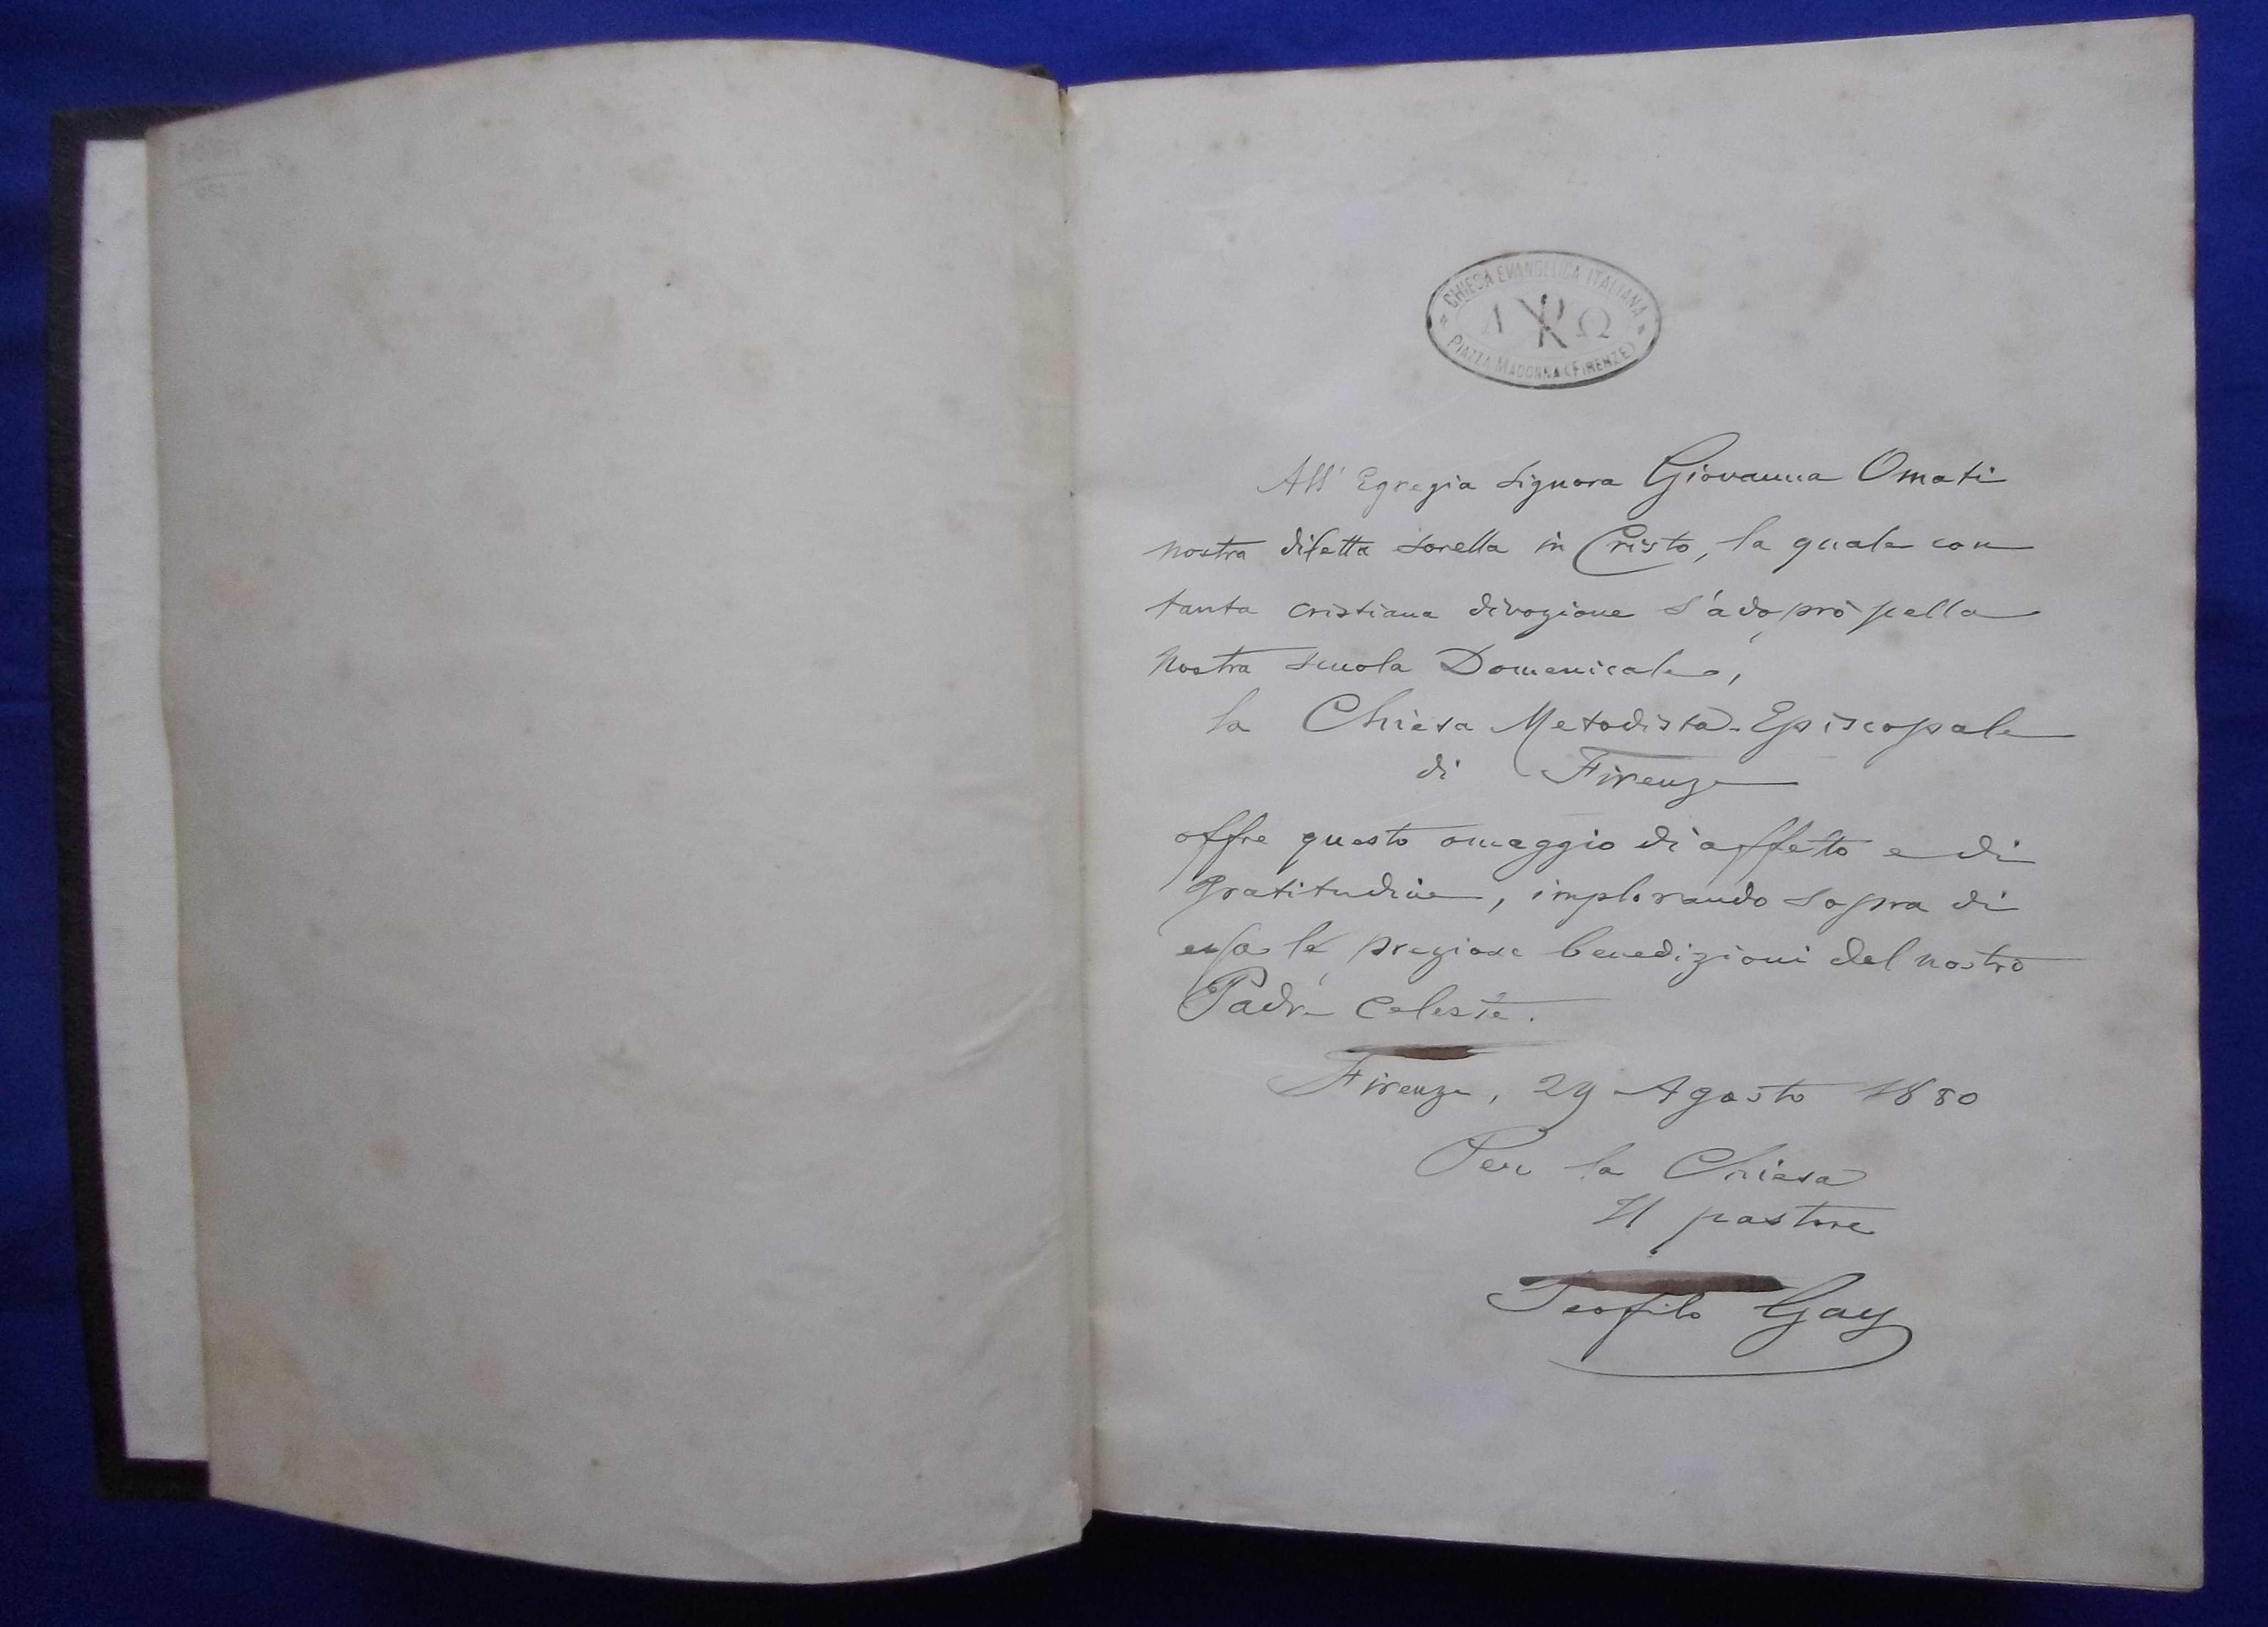 CHIESA EVANGELICA ITALIANA
Α ☧ Ω
PIAZZA MADONNA (FIRENZE)
All' Egregia Signora Giovanna Omati
nostra diletta sorella in Cristo, la quale con
tanta cristiana divozione s'adoprò pella
nostra scuola Domenicale,
la Chiesa Metodista-Episcopale
di Firenze
offre questo omaggio di affetto e di
gratitudine, implorando sopra di
essa le preziose benedizioni del nostro
Padre Celeste.
Firenze, 29 Agosto 1880
Per la Chiesa
Il pastore
Teofilo Gay